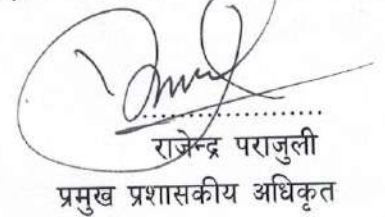 राजेन्द्र पराजुली
प्रमुख प्रशासकीय अधिकृत